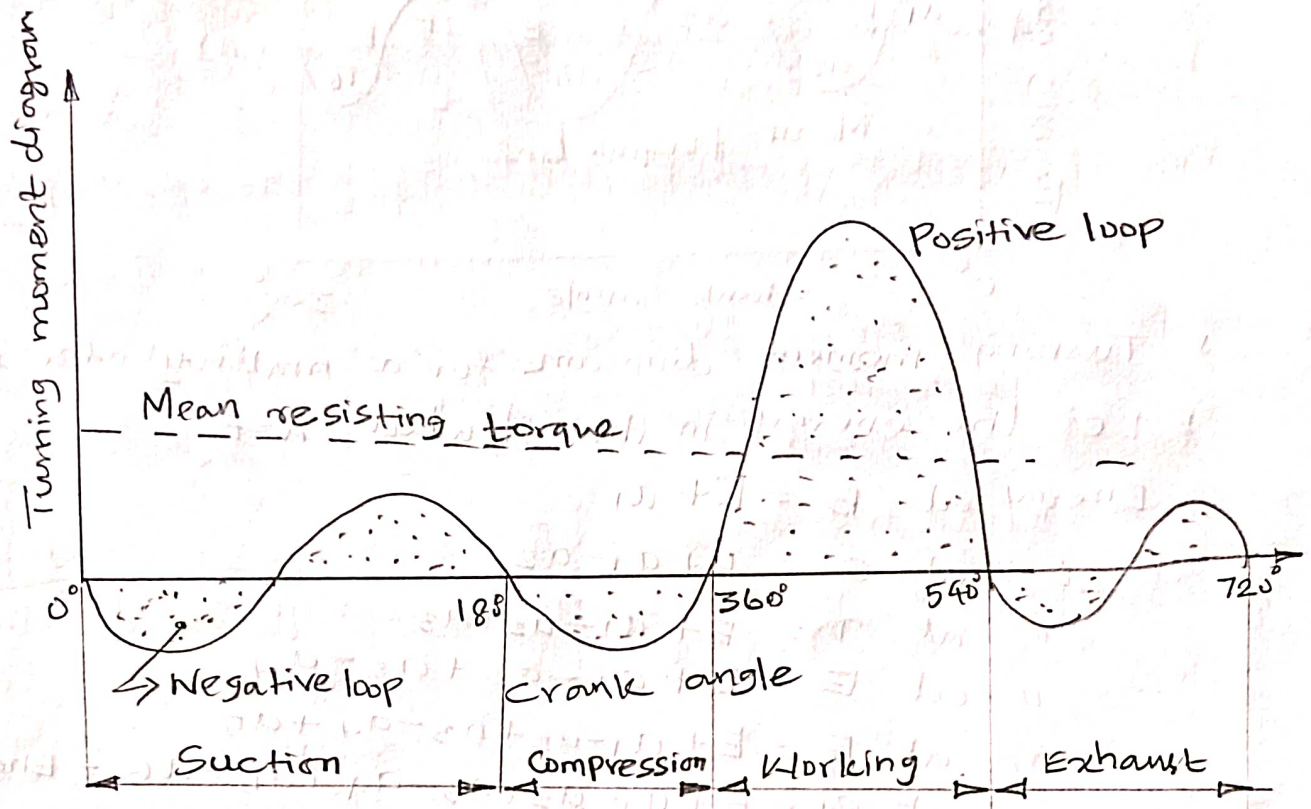 Turning moment diagram
Positive loop
Mean resisting torque
0°
180
360°
540°
720°
Negative loop
Crank angle
Suction
Compression
Working
Exhaust